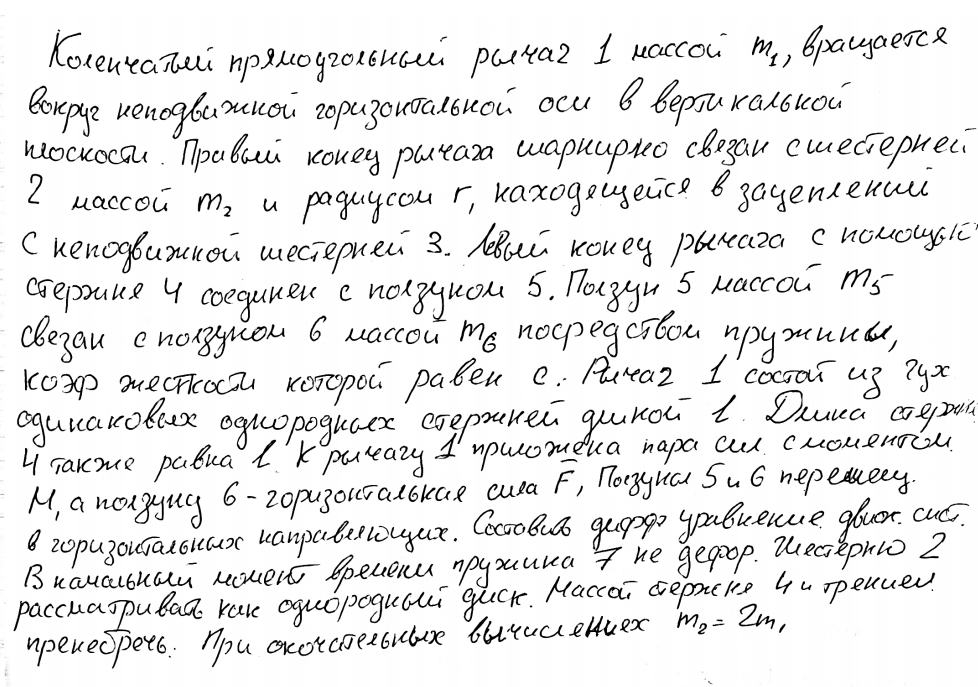 Коленчатый прямоугольный рычаг 1 массой m₁, вращается
вокруг неподвижной горизонтальной оси в вертикальной
плоскости. Правый конец рычага шарнирно связан с шестерней
2 массой m₂ и радиусом r, находящейся в зацеплений
с неподвижной шестерней 3. Левый конец рычага с помощью
стержня 4 соединен с ползуном 5. Ползун 5 массой m₅
связан с ползуном 6 массой m₆ посредством пружины,
коэф жесткости которой равен c. Рычаг 1 состой из 2ух
одинаковых однородных стержней длиной l. Длина стержня
4 также равна l. К рычагу 1 приложена пара сил с моментом
M, а ползуну 6 - горизонтальная сила F̅, Ползуны 5 и 6 перемещ.
в горизонтальных направляющих. Составить дифф уравнение движ. сист.
В начальный момент времени пружина 7 не дефор. Шестерню 2
рассматривать как однородный диск. Массой стержня 4 и трением
пренебречь. При окочательных вычислениех m₂ = 2m₁